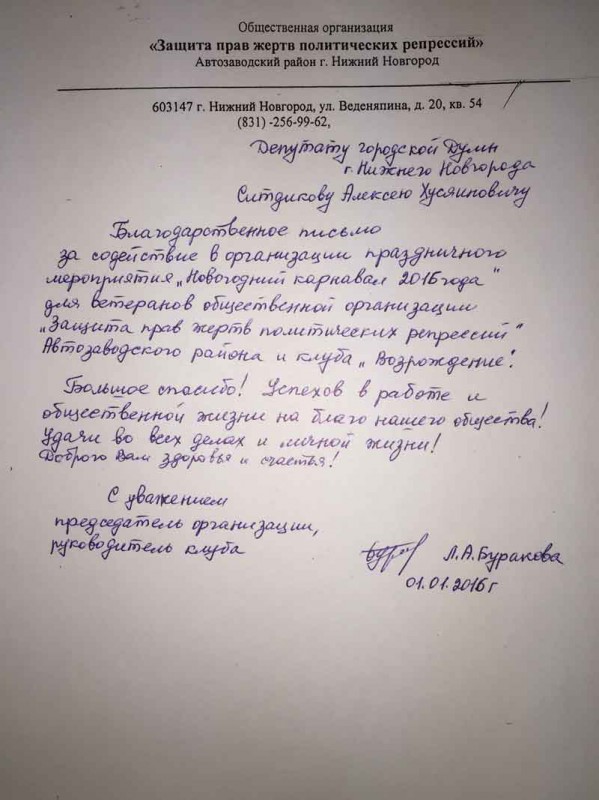 Общественная организация
«Защита прав жертв политических репрессий»
Автозаводский район г. Нижний Новгород
603147 г. Нижний Новгород, ул. Веденяпина, д. 20, кв. 54
(831) -256-99-62,
Депутату городской Думы
г. Нижнего Новгорода
Ситдикову Алексею Хусяиновичу
Благодарственное письмо
за содействие в организации праздничного
мероприятия „Новогодний карнавал 2016 года"
для ветеранов общественной организации
„Защита прав жертв политических репрессий"
Автозаводского района и клуба „Возрождение".
Большое спасибо! Успехов в работе и
общественной жизни на благо нашего общества!
Удачи во всех делах и личной жизни!
Доброго Вам здоровья и счастья!
С уважением
председатель организации,
руководитель клуба
Л.А.Буракова
01.01.2016 г